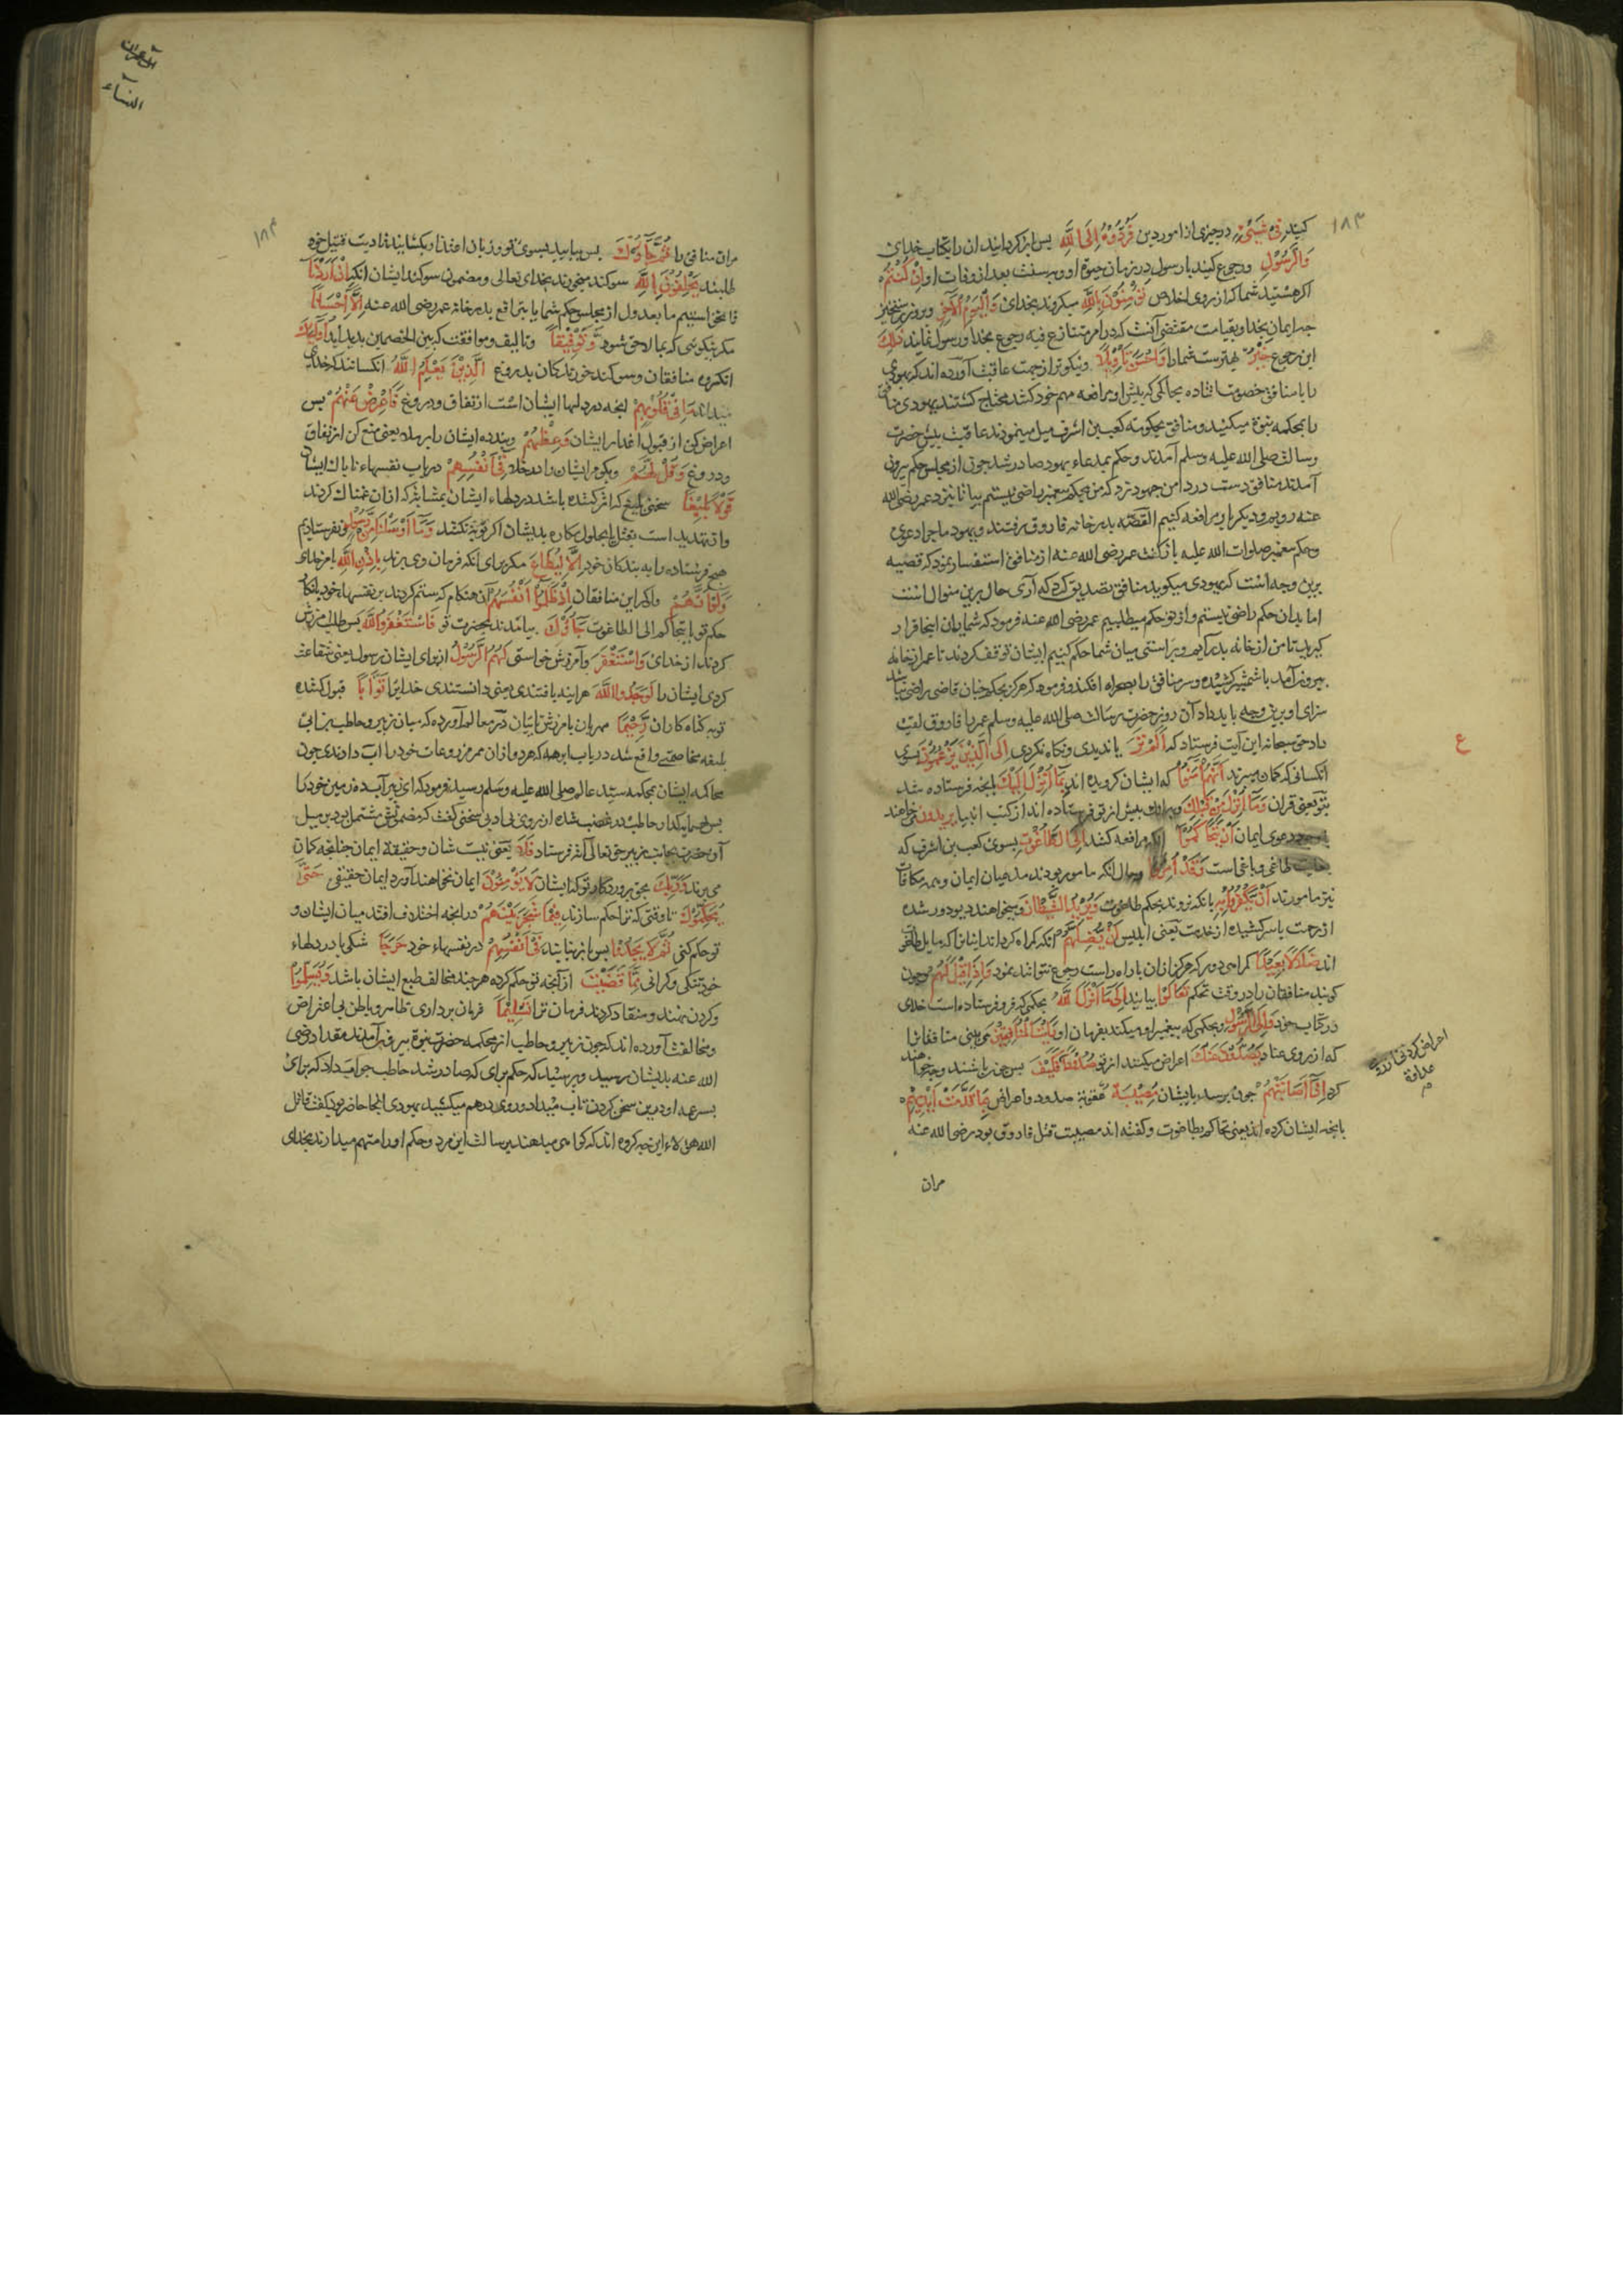 ۱۸۳
کنید فِی شَیْءٍ در چیزی از امور دین فَرُدُّوهُ اِلَی اللّٰهِ پس باز کردانید ان را بکتاب خدای
وَالرَّسُوْلِ و رجوع کنید با رسول در زمان حیوة او و بسنت بعد از وفات او اِنْ کُنْتُمْ
اکر هستید شما که از روی اخلاص تُؤْمِنُوْنَ بِاللّٰهِ میکروید بخدای وَالْیَوْمِ الْآخِرِ و بروز رستخیز
چه ایمان بخدا و بقیامت مقتضی آنست که در امر متنازع فیه رجوع بخدا و رسول نمایند ذٰلِكَ
این رجوع خَیْرٌ بهترست شما را وَاَحْسَنُ تَاْوِیْلًا و نیکوتر از جهت عاقبت آورده اند که یهودی
را با منافق خصومت افتاده بحاکمی که پیش او مرافعه مهم خود کنند محتاج کشتند یهودی منافق
را بمحکمه نبوة میکشید و منافق بحکومة کعب بن اشرف میل مینمودند عاقبت پیش حضرت
رسالت صلی الله علیه وسلم آمدند و حکم بمدعاء یهود صادر شد چون از مجلس حکم بیرون
آمدند منافق دست در دامن جهود زد که من بحکم پیغمبر راضی نیستم بیا تا نزد عمر رضی الله
عنه رویم و دیکر بار مرافعه کنیم القصّه بدر خانه فاروق رفتند و یهود ماجرا دعوی
و حکم پیغمبر صلوات الله علیه باز کفت عمر رضی الله عنه از منافق استفسار نمود که قضیه
برین وجه است که یهودی میکوید منافق تصدیق کرد که آری حال برین منوال است
اما بدان حکم راضی نیستم و از تو حکم میطلبیم عمر رضی الله عنه فرمود که شمایان اینجا قرار
کیرید تا من از خانه بدر آیم و براستی میان شما حکم کنم ایشان توقف کردند تا عمر از خانه
بیرون آمد با شمشیر کشیده و سر منافق را بصحرا افکند و فرمود که هرکه بحکم چنان قاضی راضی نباشد
سزای او برین وجه باید داد آن روز حضرت رسالت صلی الله علیه وسلم عمر را فاروق لقب
داد حق سبحانه این آیت فرستاد که اَلَمْ تَرَ یا ندیدی و نکاه نکردی اِلَی الَّذِیْنَ یَزْعُمُوْنَ بسوی
ع
انکسانی که کمان میبرند اَنَّهُمْ اٰمَنُوْا که ایشان کرویده اند بِمَا اُنْزِلَ اِلَیْكَ بانچه فرستاده شد
بتو یعنی قران وَمَا اُنْزِلَ مِنْ قَبْلِكَ و بدانچه پیش از تو فرستاده اند از کتب انبیا یُرِیْدُوْنَ میخواهند
با وجود دعوی ایمان اَنْ یَتَحَاکَمُوْا انکه مرافعه کنند اِلَی الطَّاغُوْتِ بسوی کعب بن اشرف که
طاغی و باغی است وَقَدْ اُمِرُوْا و حال انکه مامور بودند مدعیان ایمان و همه مکلفان
نیز مامورند اَنْ یَکْفُرُوْا بِهٖ بانکه نروند بحکم طاغوت وَیُرِیْدُ الشَّیْطَانُ و میخواهند دیو دور شده
از رحمت یا سرکشیده از خدمت یعنی ابلیس اَنْ یُضِلَّهُمْ انکه کمراه کرداند اینانرا که مایل طاغوت
اند ضَلَالًا بَعِیْدًا کمراهی دور که هرکز ازان با راه راست رجوع نتوانند نمود وَاِذَا قِیْلَ لَهُمْ و چون
کویند منافقان را در وقت تحکم تَعَالَوْا بیایید اِلٰی مَا اَنْزَلَ اللّٰهُ بحکمی که فرو فرستاده است خدای
در کتاب خود وَاِلَی الرَّسُوْلِ و بحکمی که پیغمبر او میکند بفرمان او رَاَیْتَ الْمُنَافِقِیْنَ می بینی منافقانرا
که از روی عناد یَصُدُّوْنَ عَنْكَ اعراض میکنند از تو صُدُوْدًا فَکَیْفَ پس چون باشند و چه خواهند
کرد اِذَا اَصَابَتْهُمْ چون برسد بایشان مُصِیْبَةٌ عقوبة صدود و اعراض بِمَا قَدَّمَتْ اَیْدِیْهِمْ
بانچه ایشان کرده اند یعنی تحاکم بطاغوت و کفته اند مصیبت قتل فاروق بود رضی الله عنه
مران
آل عمران
النساء
مران منافق را ثُمَّ جَآءُوْكَ پس بیایند بسوی تو و زبان اعتذار بکشایند و دیت قتیل خود
طلبند یَحْلِفُوْنَ بِاللّٰهِ سوکند میخورند بخدای تعالی و مضمون سوکند ایشان انکه اِنْ اَرَدْنَا
ما نخواستیم ما بعدول از مجلس حکم شما یا بترافع بدر خانه عمر رضی الله عنه اِلَّا اِحْسَانًا
مکر نیکویی که بما لاحق شود وَتَوْفِیْقًا و تالیف و موافقت که بین الخصمین پدید اید اُولٰٓئِكَ
انکروه منافقان و سوکند خورندکان بدروغ الَّذِیْنَ یَعْلَمُ اللّٰهُ انکسانند که خدای
میداند مَا فِیْ قُلُوْبِهِمْ انچه در دلهای ایشان است از نفاق و دروغ فَاَعْرِضْ عَنْهُمْ پس
اعراض کن از قبول اعذار ایشان وَعِظْهُمْ و پند ده ایشان را یعنی منع کن از نفاق
و دروغ وَقُلْ لَهُمْ و بکو مر ایشان را فِیْ اَنْفُسِهِمْ در باب نفسهاء ناپاک ایشان
قَوْلًا بَلِیْغًا سخنی بلیغ که اثر کننده باشد در دلهاء ایشان بمثابتی که ازان غمناک کردند
و ان تهدید است بقتل یا بحلول مکاره بدیشان اکر توبه نکنند وَمَا اَرْسَلْنَا مِنْ رَسُوْلٍ و نفرستادیم
هیچ فرستاده را به بندکان خود اِلَّا لِیُطَاعَ مکر برای انکه فرمان وی برند بِاِذْنِ اللّٰهِ بامر خدای
وَلَوْ اَنَّهُمْ و اکر این منافقان اِذْ ظَلَمُوْا اَنْفُسَهُمْ آن هنکام که ستم کردند بر نفسهاء خود بانکار
حکم تو یا بتحاکم الی الطاغوت جَآءُوْكَ بیامدند بحضرت تو فَاسْتَغْفَرُوا اللّٰهَ پس طلب امرزش
کردند از خدای وَاسْتَغْفَرَ و آمرزش خواستی لَهُمُ الرَّسُوْلُ از برای ایشان رسول یعنی شفاعت
کردی ایشان را لَوَجَدُوا اللّٰهَ هر اینه یافتندی یعنی دانستندی خدایرا تَوَّابًا قبول کننده
توبه کناه کاران رَحِیْمًا مهربان بامرزش تایبان در معالم آورده که میان زبیر و حاطب بن ابی
بلتعه مخاصمتی واقع شد در باب ابی که هر دو ازان ممر مزروعات خود را اب دادندی چون
محاکمه ایشان بمحکمه سید عالم صلی الله علیه وسلم رسید فرمود که ای زبیر آب ده زمین خود را
پس بهمسایه کذار حاطب در غضب شده از روی بی ادبی سخنی کفت که مضمونش مشتمل بود بر میل
آن حضرت بجانب زبیر حق تعالی آیه فرستاد فَلَا یعنی نیست شان و حقیقة ایمان چنانچه کمان
می برند وَرَبِّكَ بحق پروردکار تو که ایشان لَا یُؤْمِنُوْنَ ایمان نخواهند آورد ایمان حقیقی حَتّٰی
یُحَکِّمُوْكَ تا وقتی که ترا حکم سازند فِیْمَا شَجَرَ بَیْنَهُمْ در انچه اختلاف افتد میان ایشان و
تو حکم کنی ثُمَّ لَا یَجِدُوْا پس باز نیابند فِیْ اَنْفُسِهِمْ در نفسهاء خود حَرَجًا شکی یا در دلهاء
خود تنکی و کرانی مِمَّا قَضَیْتَ از آنچه تو حکم کرده هر چند مخالف طبع ایشان باشد وَیُسَلِّمُوْا
و کردن نهند و منقاد کردند فرمان ترا تَسْلِیْمًا فرمان برداری ظاهر و باطن بی اعتراض
و مخالفت آورده اند که چون زبیر و حاطب از محکمه حضرت نبوة بیرون آمدند مقداد رضی
الله عنه بدیشان رسید و پرسید که حکم برای که صادر شد حاطب جواب داد که برای
پسر عمه او و درین سخن کردن تاب میداد و روی درهم میکشید یهودی انجا حاضر بود کفت قاتل
الله هؤلاء این چه کروه اند که کواهی میدهند برسالت این مرد و حکم او را متهم میدارند بخدای